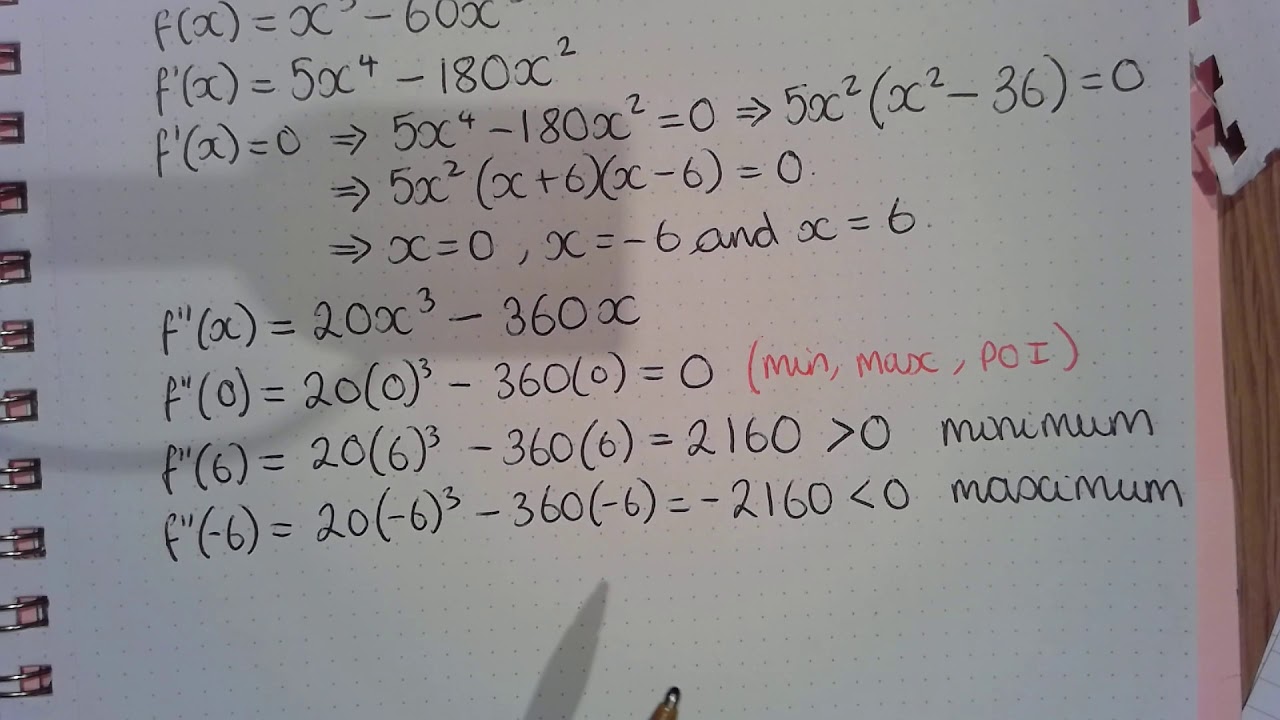 f(x) = x⁵ − 60x
f'(x) = 5x⁴ − 180x²
f'(x) = 0 ⇒ 5x⁴ − 180x² = 0 ⇒ 5x²(x² − 36) = 0
⇒ 5x²(x+6)(x−6) = 0.
⇒ x = 0, x = −6 and x = 6.
f''(x) = 20x³ − 360x
f''(0) = 20(0)³ − 360(0) = 0 (min, max, POI)
f''(6) = 20(6)³ − 360(6) = 2160 > 0 minimum
f''(−6) = 20(−6)³ − 360(−6) = −2160 < 0 maximum